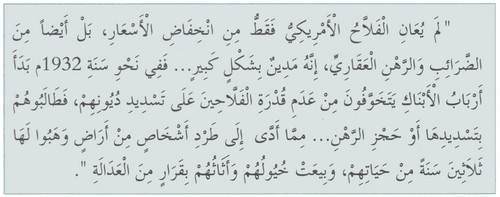 "لَمْ يُعَانِ الْفَلاَّحُ الْأَمْرِيكِيُّ فَقَطُّ مِنِ انْخِفَاضِ الْأَسْعَارِ، بَلْ أَيْضاً مِنَ
الضَّرَائِبِ وَالرَّهْنِ الْعَقَارِيِّ، إِنَّهُ مَدِينٌ بِشَكْلٍ كَبِيرٍ... فَفِي نَحْوِ سَنَةِ 1932م بَدَأَ
أَرْبَابُ الْأَبْنَاكِ يَتَخَوَّفُونَ مِنْ عَدَمِ قُدْرَةِ الْفَلَّاحِينَ عَلَى تَسْدِيدِ دُيُونِهِمْ، فَطَالَبُوهُمْ
بِتَسْدِيدِهَا أَوْ حَجْزِ الرَّهْنِ... مِمَّا أَدَّى إِلَى طَرْدِ أَشْخَاصٍ مِنْ أَرَاضٍ وَهَبُوا لَهَا
ثَلاَثِينَ سَنَةً مِنْ حَيَاتِهِمْ، وَبِيعَتْ خُيُولُهُمْ وَأَثَاثُهُمْ بِقَرَارٍ مِنَ الْعَدَالَةِ".